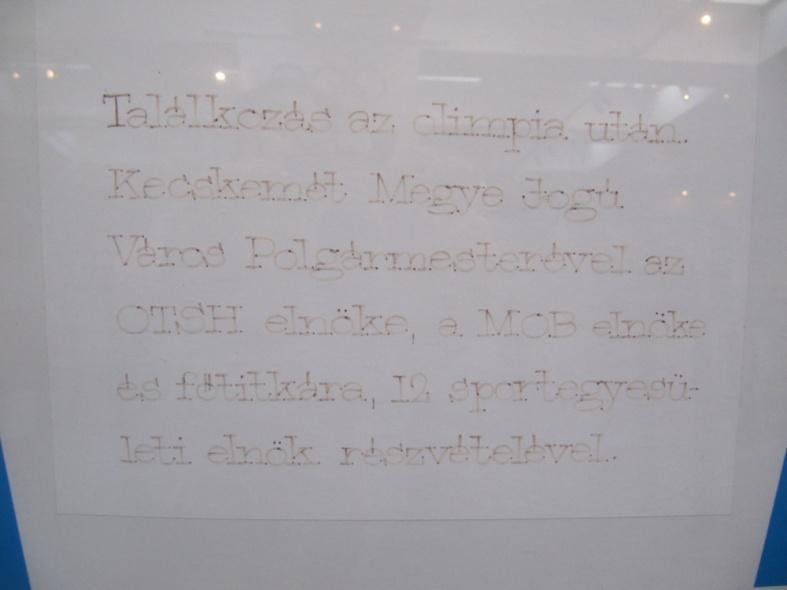 Találkozás az olimpia után.
Kecskemét Megye Jogú
Város Polgármesterével az
OTSH elnöke, a MOB elnöke
és főtitkára, 12 sportegyesü-
leti elnök részvételével.